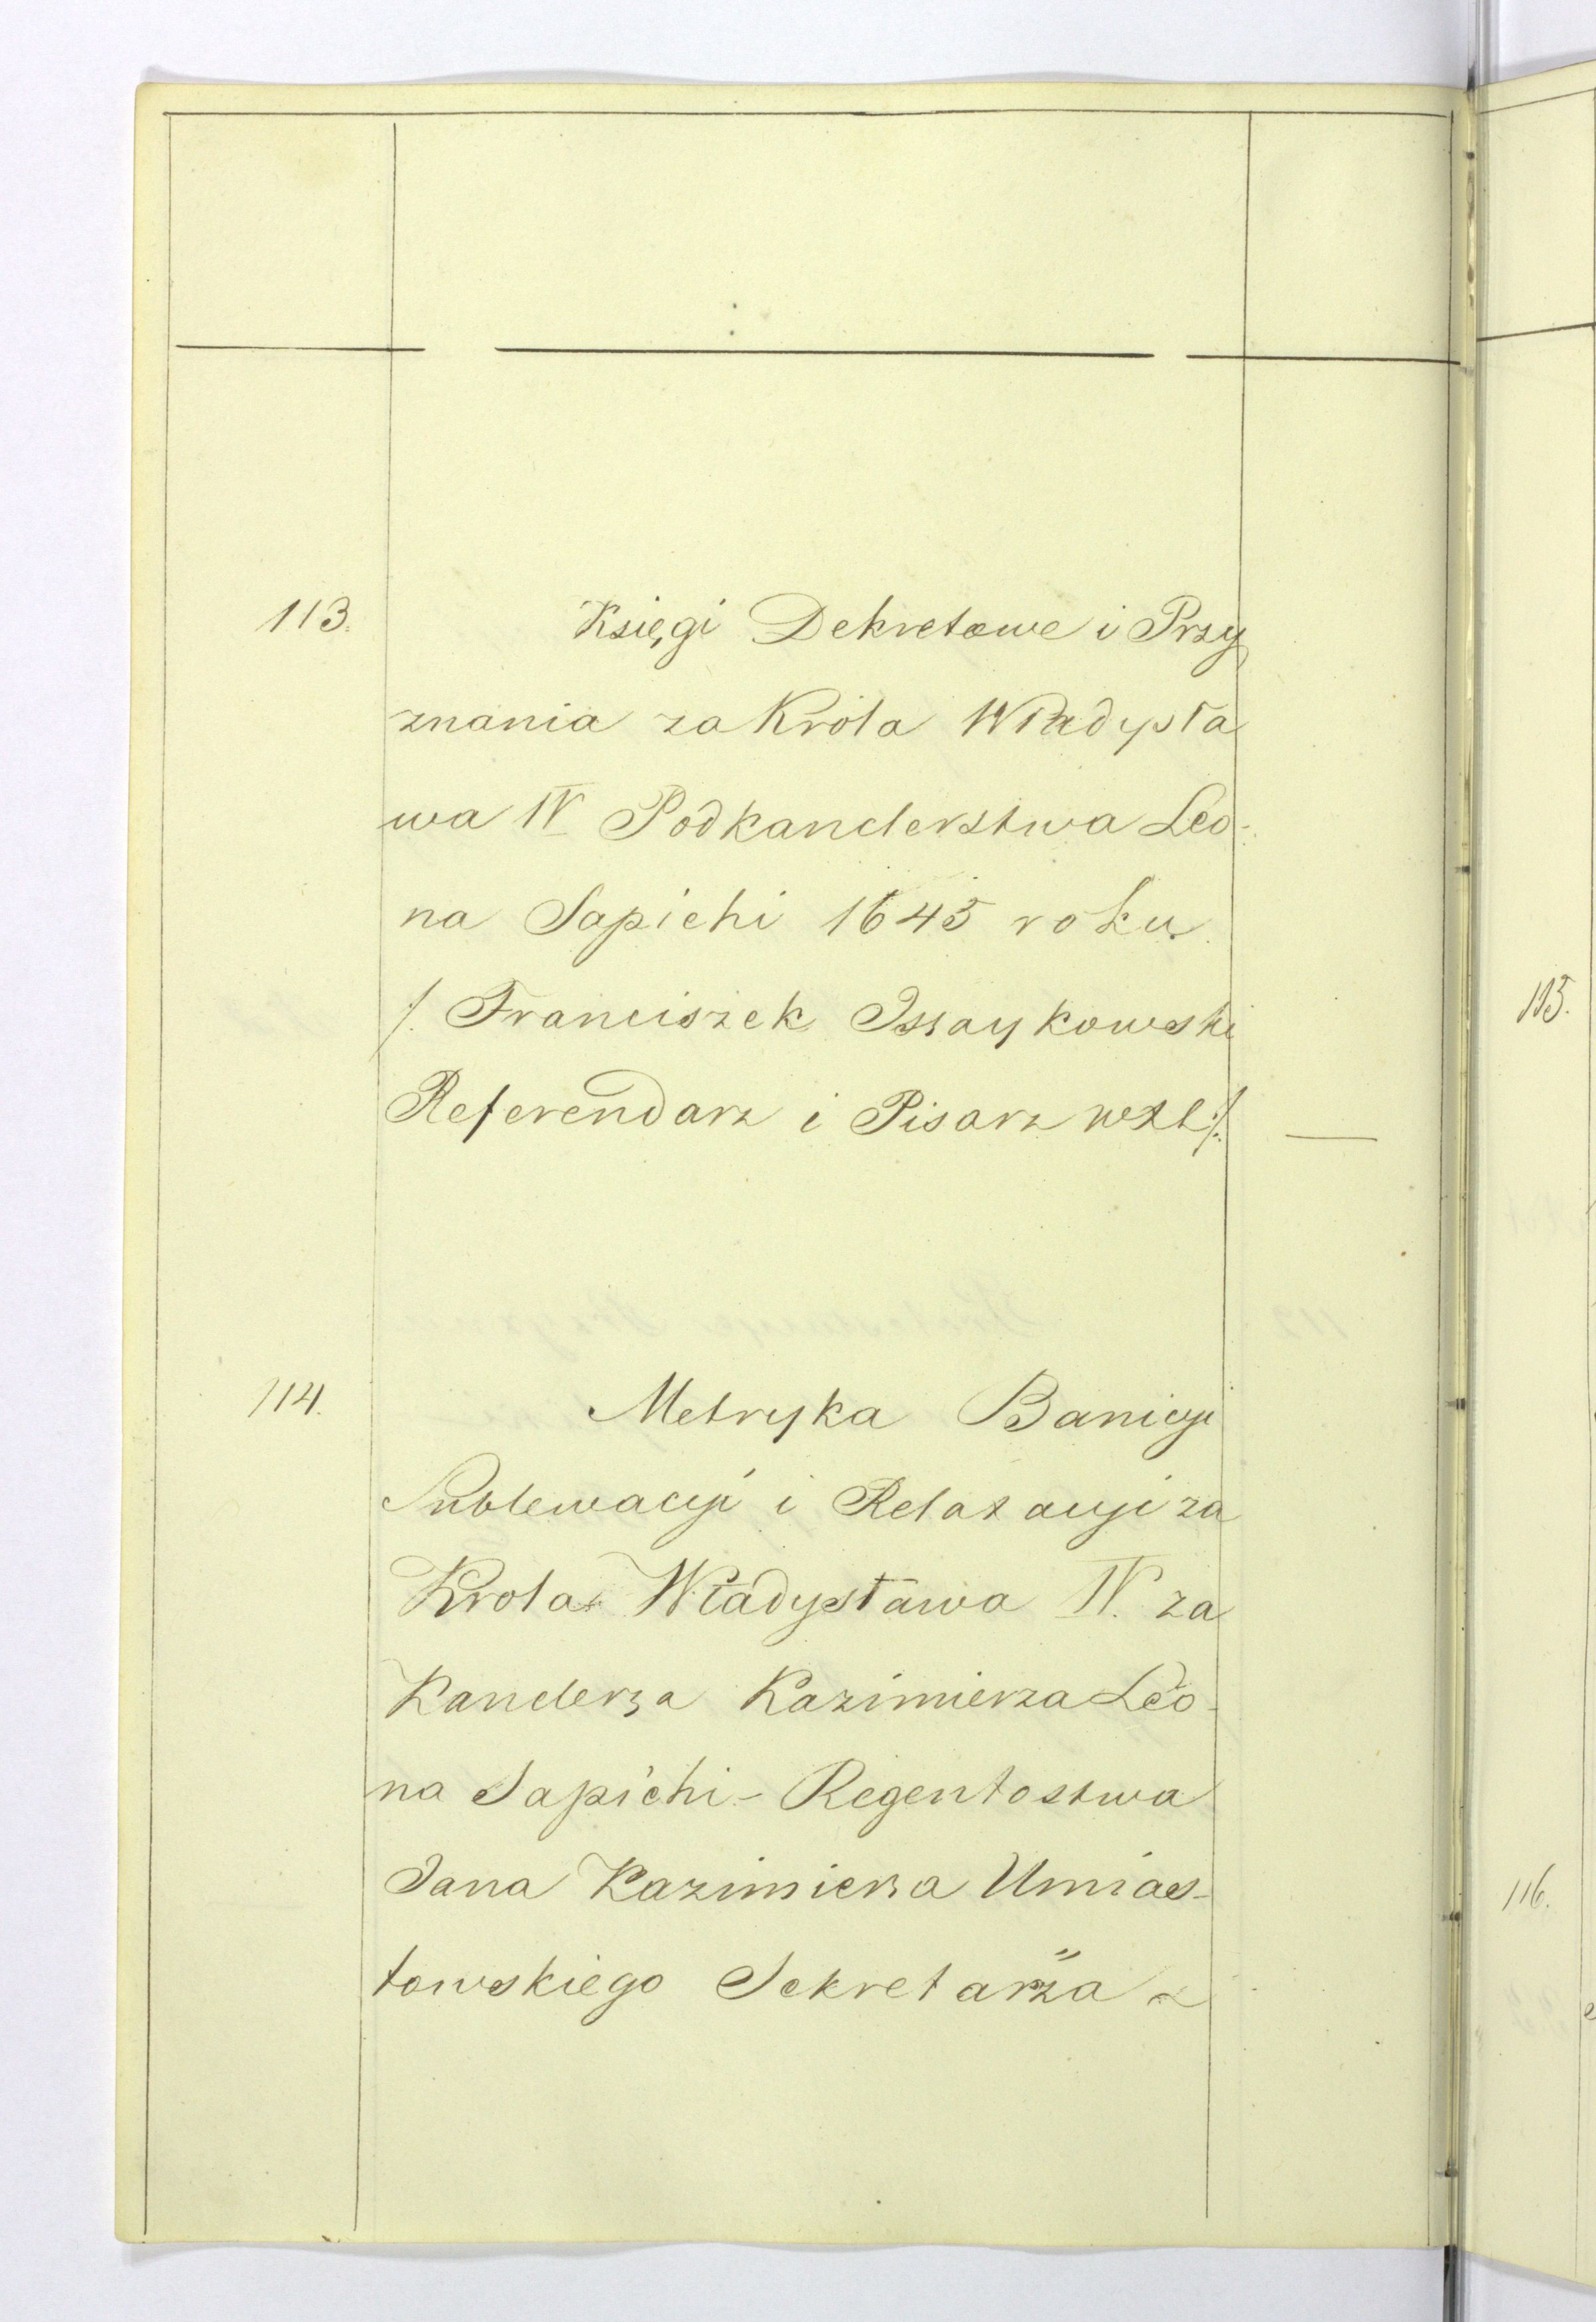 113. Księgi Dekretowe i Przy
znania za Króla Władysła
wa IV Podkanclerstwa Leo-
na Sapiehi 1645 roku
/. Franciszek Issaykowski
Referendarz i Pisarz WXL ./.
114. Metryka Banicyi
Sublewacyi i Relatacyi za
Krola Władysława IV. za
Kanclerza Kazimierza Leo-
na Sapiehi - Regentostwa
Jana Kazimierza Umias-
towskiego Sekretarza
115.
116.